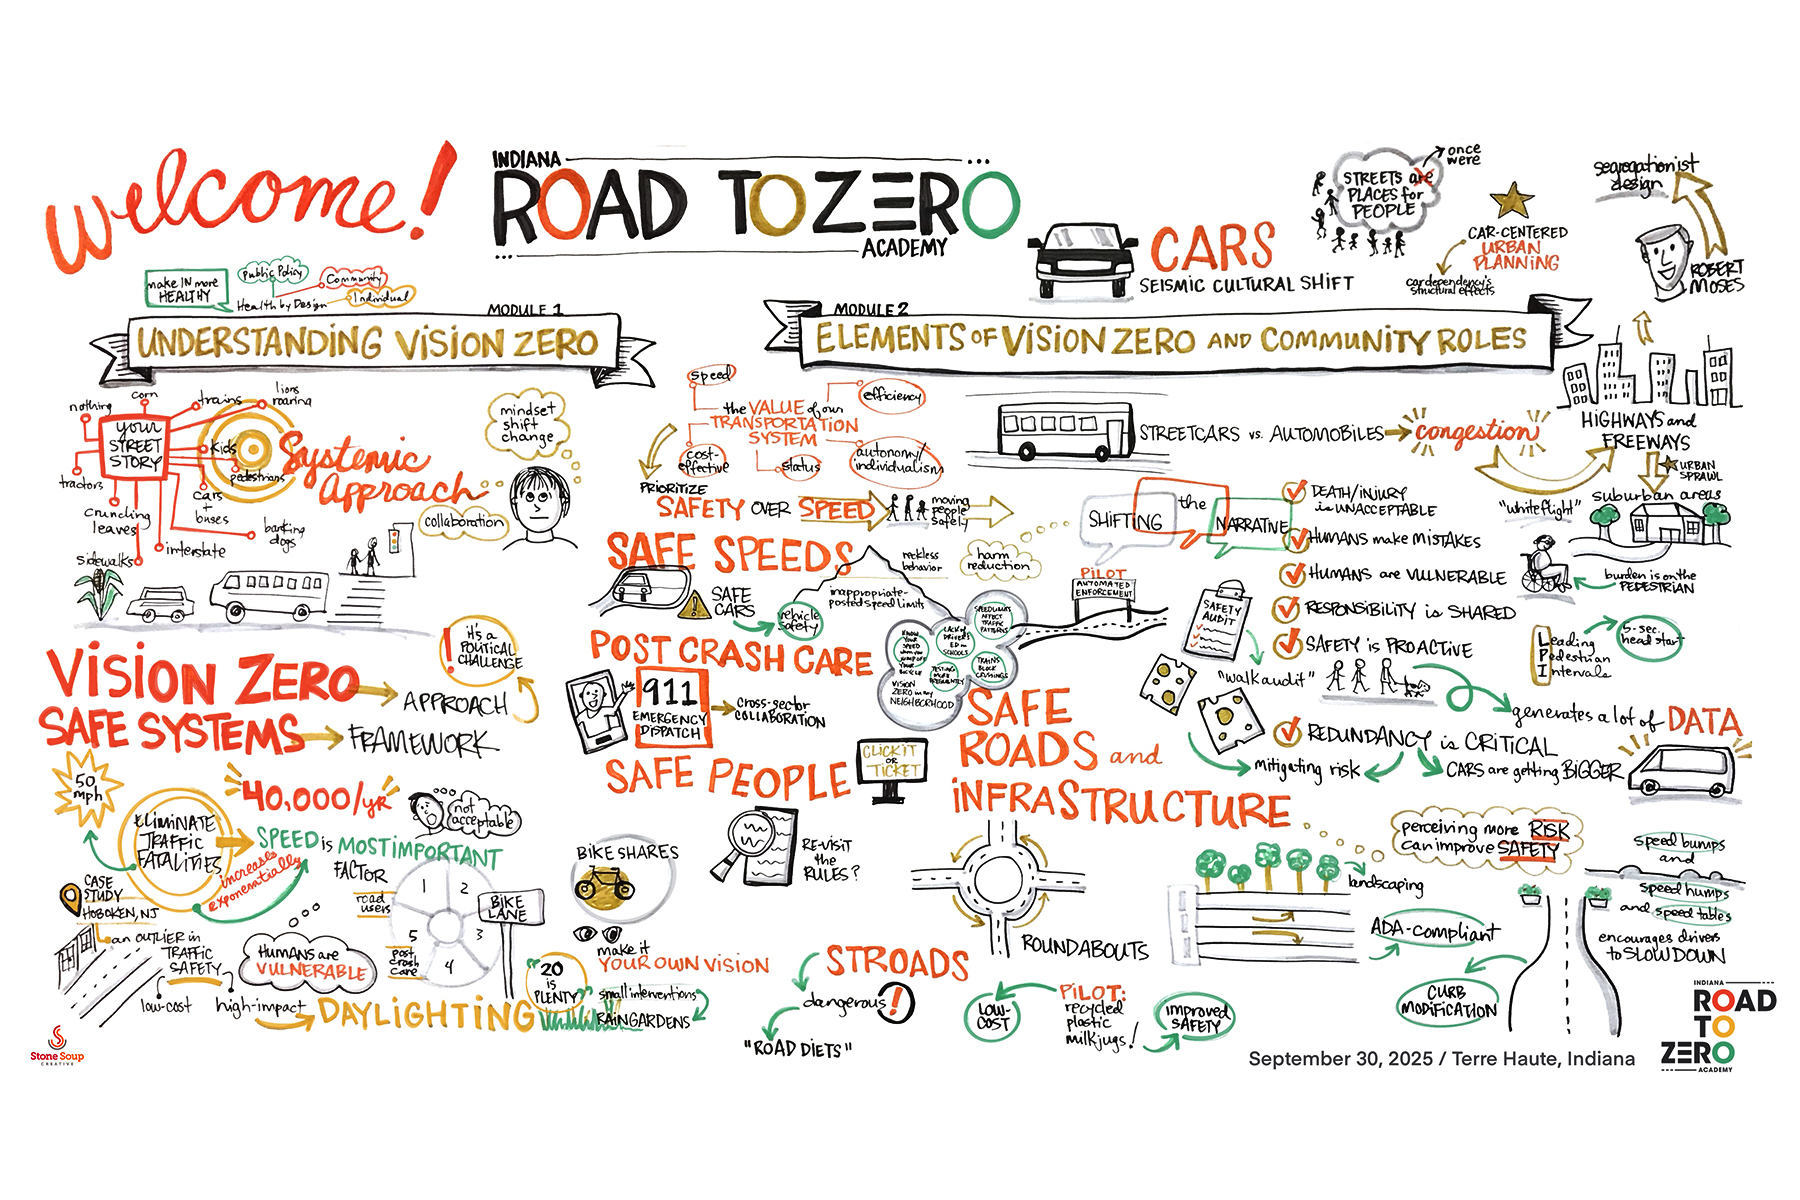 welcome!
INDIANA
ROAD TO ZERO
ACADEMY
make IN more
HEALTHY
Public Policy
Community
Individual
Health by Design
MODULE 1
UNDERSTANDING VISION ZERO
your
STREET
STORY
nothing
corn
trains
lions
roaring
kids
pedestrians
cars
+
buses
barking
dogs
interstate
sidewalks
crunching
leaves
tractors
Systemic
Approach
mindset
shift
change
collaboration
VISION ZERO
APPROACH
it's a
POLITICAL
CHALLENGE
!
SAFE SYSTEMS
FRAMEWORK
50
mph
ELIMINATE
TRAFFIC
FATALITIES
40,000/yr
not
acceptable
SPEED is MOST IMPORTANT
FACTOR
increases
exponentially
CASE
STUDY
HOBOKEN, NJ
an OUTLIER in
TRAFFIC
SAFETY
low-cost
high-impact
HUMANS are
VULNERABLE
DAYLIGHTING
road
users
1
2
3
4
5
post
crash
care
BIKE
LANE
"20
IS
PLENTY"
small interventions
RAINGARDENS
BIKE SHARES
make it
YOUR OWN VISION
CARS
SEISMIC CULTURAL SHIFT
STREETS are
PLACES for
PEOPLE
once
were
CAR-CENTERED
URBAN
PLANNING
car dependency's
structural effects
segregationist
design
ROBERT
MOSES
MODULE 2
ELEMENTS OF VISION ZERO AND COMMUNITY ROLES
speed
efficiency
the VALUE of our
TRANSPORTATION
SYSTEM
cost-
effective
status
autonomy/
individualism
PRIORITIZE
SAFETY OVER SPEED
moving
people
safely
STREETCARS vs. AUTOMOBILES
congestion
HIGHWAYS and
FREEWAYS
URBAN
SPRAWL
"white flight"
suburban areas
SAFE SPEEDS
reckless
behavior
inappropriate-
posted speed limits
harm
reduction
SAFE
CARS
vehicle
safety
PILOT
AUTOMATED
ENFORCEMENT
SHIFTING
the
NARRATIVE
DEATH/INJURY
is UNACCEPTABLE
HUMANS make MISTAKES
HUMANS are VULNERABLE
RESPONSIBILITY is SHARED
SAFETY is PROACTIVE
REDUNDANCY is CRITICAL
burden is on the
PEDESTRIAN
Leading
Pedestrian
Intervals
5-sec.
head start
SAFETY
AUDIT
"walk audit"
generates a lot of DATA
mitigating risk
CARS are getting BIGGER
POST CRASH CARE
911
EMERGENCY
DISPATCH
cross-sector
COLLABORATION
SPEED LIMITS
AFFECT
TRAFFIC
PATTERNS
LACK of
DRIVER'S
ED in
SCHOOLS
TESTING
MORE
FREQUENTLY
TRAINS
BLOCK
CROSSINGS
VISION
ZERO in my
NEIGHBORHOOD
SAFE PEOPLE
CLICK IT
OR
TICKET
RE-VISIT
the
RULES?
SAFE
ROADS and
INFRASTRUCTURE
ROUNDABOUTS
STROADS
dangerous
!
"ROAD DIETS"
LOW-
COST
PILOT:
recycled
plastic
milk jugs!
improved
SAFETY
perceiving more RISK
can improve SAFETY
landscaping
ADA-compliant
CURB
MODIFICATION
speed bumps
and
speed humps
and speed tables
encourages drivers
to SLOW DOWN
Stone Soup
CREATIVE
September 30, 2025 / Terre Haute, Indiana
INDIANA
ROAD
TO
ZERO
ACADEMY